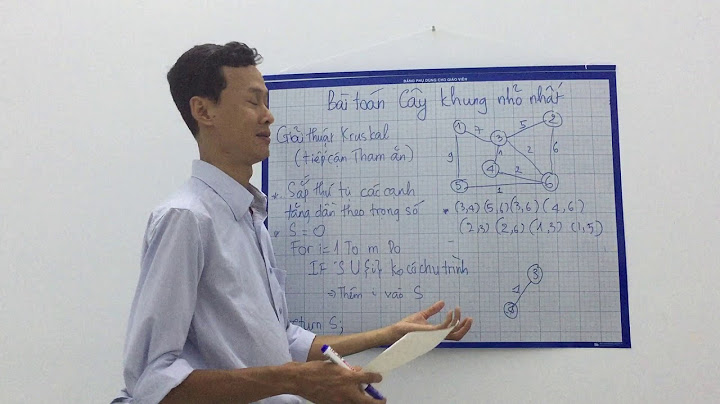 BẢNG PHỤ DÙNG CHO GIÁO VIÊN
Bài toán Cây khung nhỏ nhất
Giải thuật Kruskal
(tiếp cận Tham ăn)
* Sắp thứ tự các cạnh
tăng dần theo trọng số
* S = ∅
For i=1 To m Do
IF S U {i} ko có chu trình
⇒ Thêm i vào S
return S;
1 7 3 5 2
9 1 4 2 2 6
5 1 6
* (3,4) (5,6) (3,6) (4,6)
(2,3) (2,6) (1,3) (1,5)
3
1
4